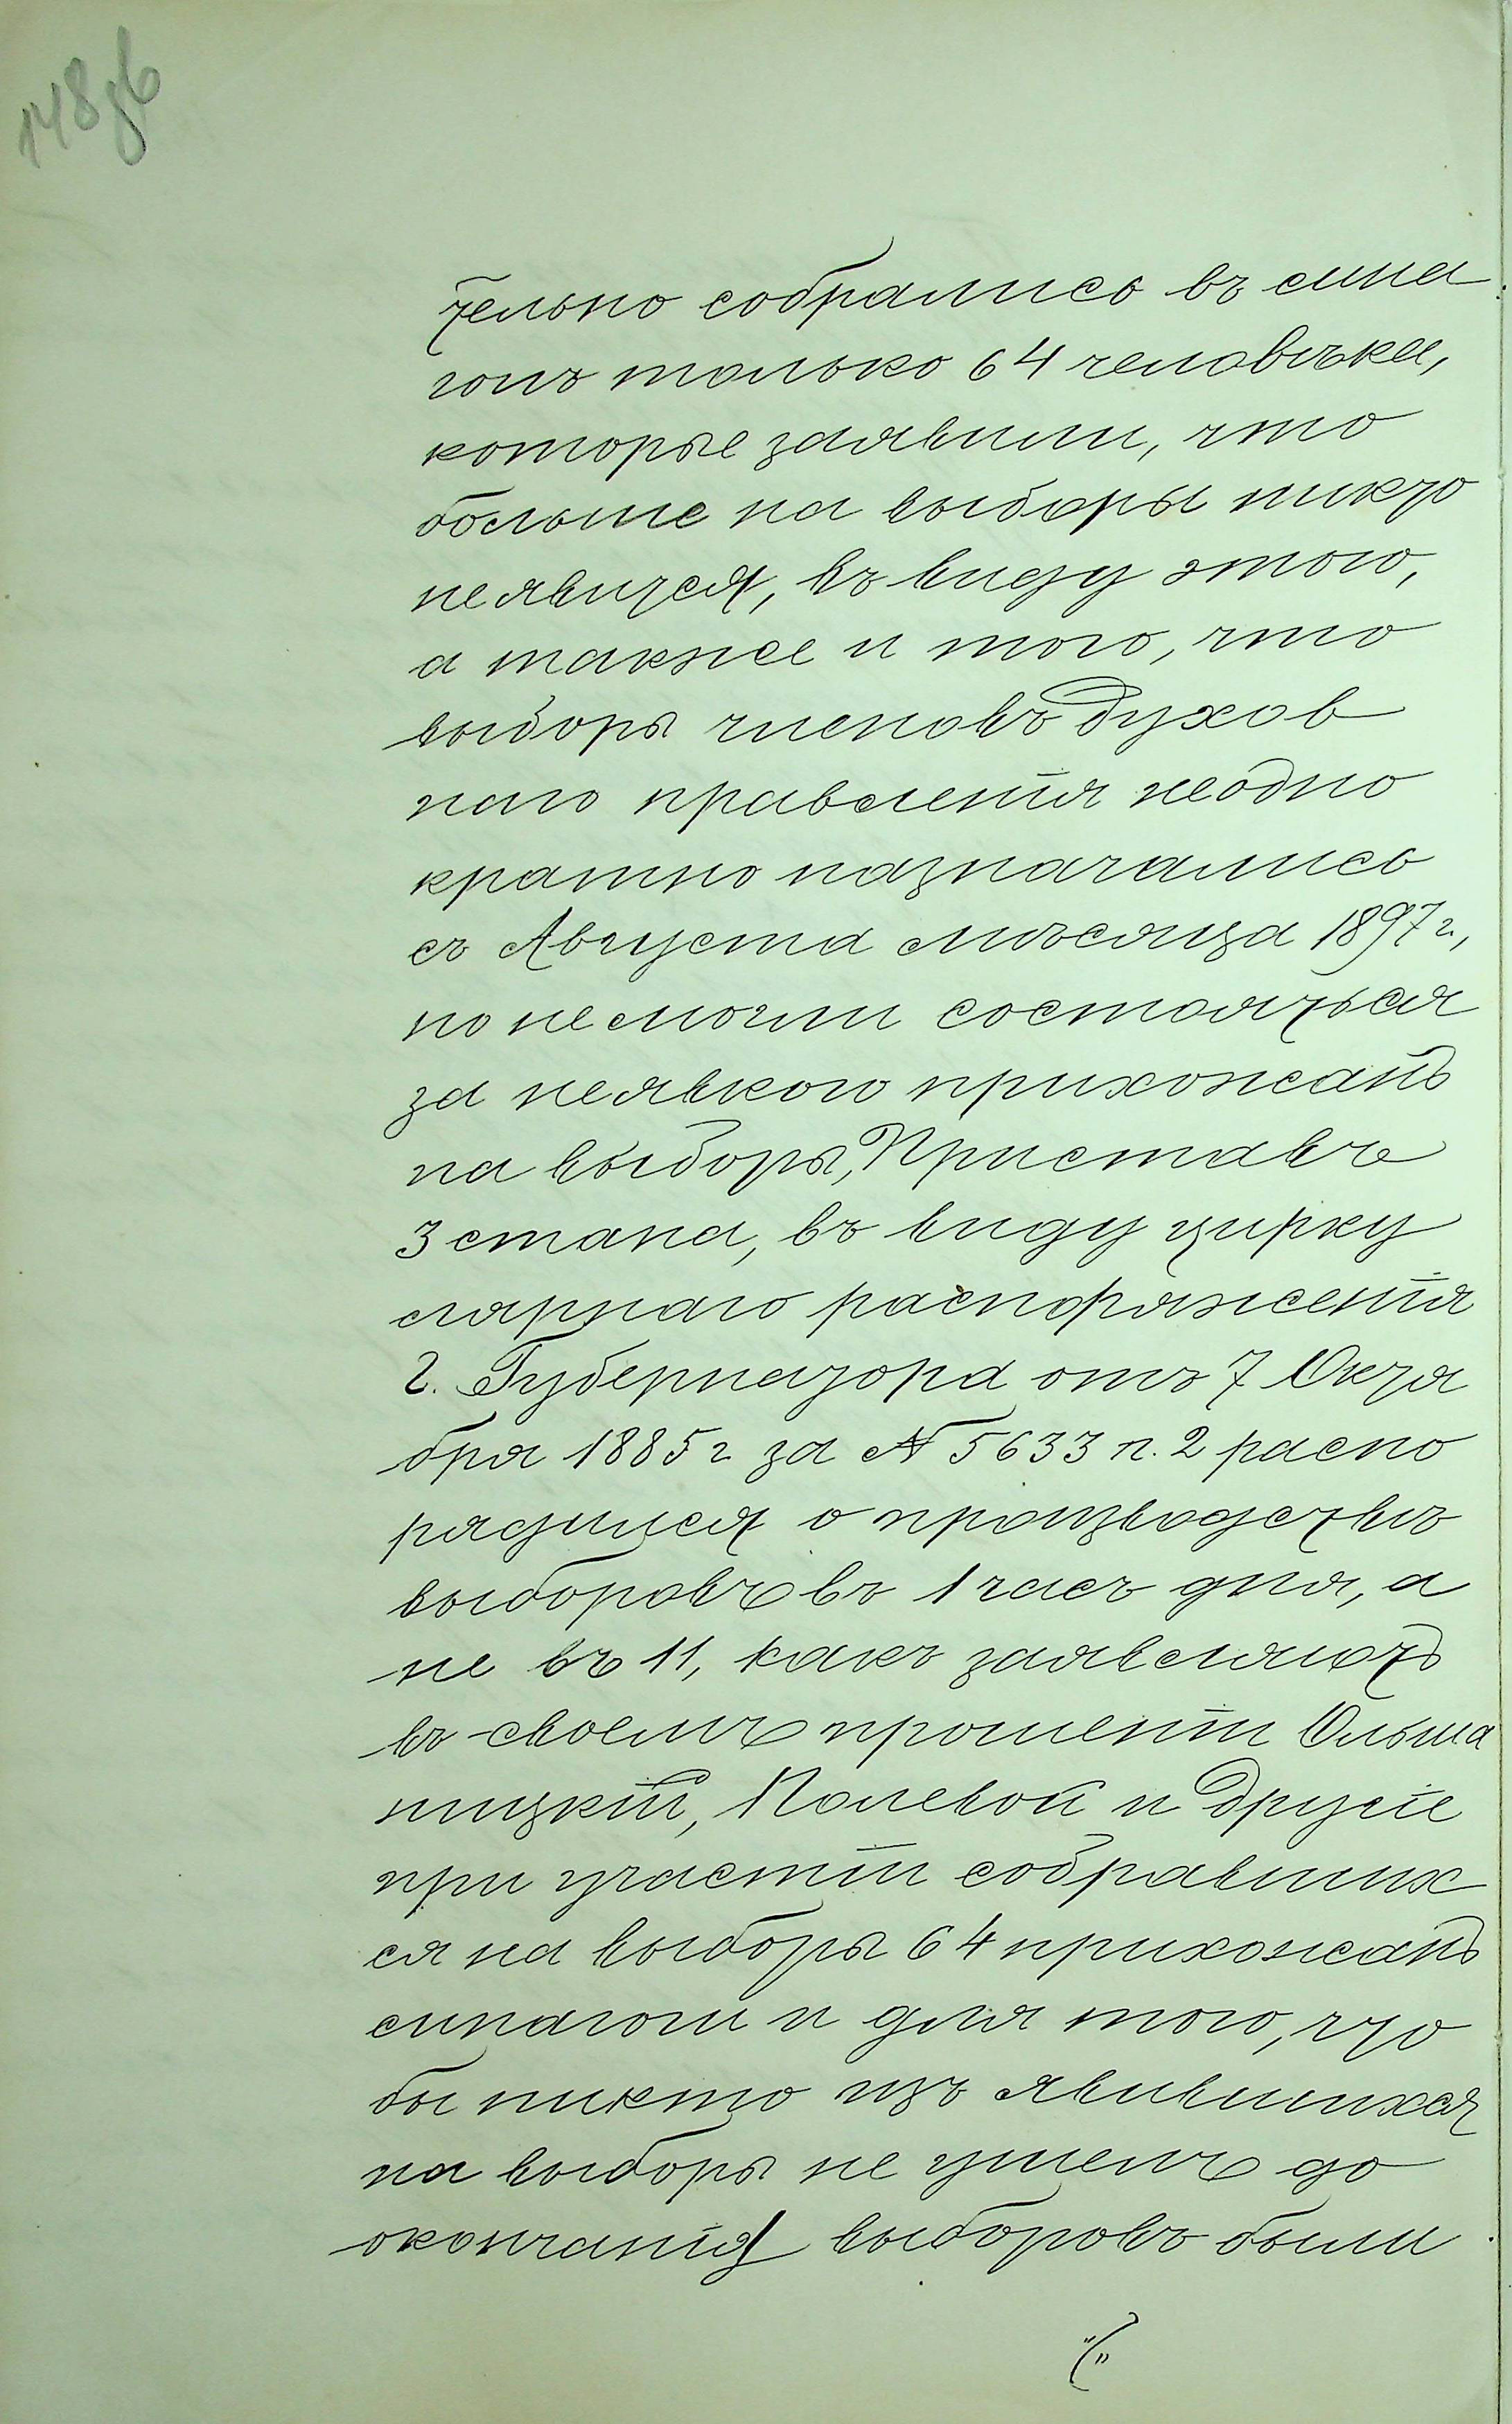 148об
тельно собрались въ сина
гогѣ только 64 человѣка,
которые заявили, что
больше на выборы никто
не явится, въ виду этого,
а также и того, что
выборы членовъ Духов
наго правленія неодно
кратно назначались
съ Августа мѣсяца 1897 г.,
но не могли состояться
за неявкою прихожанъ
на выборы, Приставъ
3 стана, въ виду цирку
лярнаго распоряженія
г. Губернатора отъ 7 Октя
бря 1885 г. за № 5633 п. 2 распо
рядился о производствѣ
выборовъ въ 1 часъ дня, а
не въ 11, какъ заявляютъ
въ своемъ прошеніи Ольша
ницкій, Полевой и Другіе
при участіи собравших
ся на выборы 64 прихожанъ
синагоги и для того, что
бы никто изъ явившихся
на выборы не ушелъ до
окончанія выборовъ были